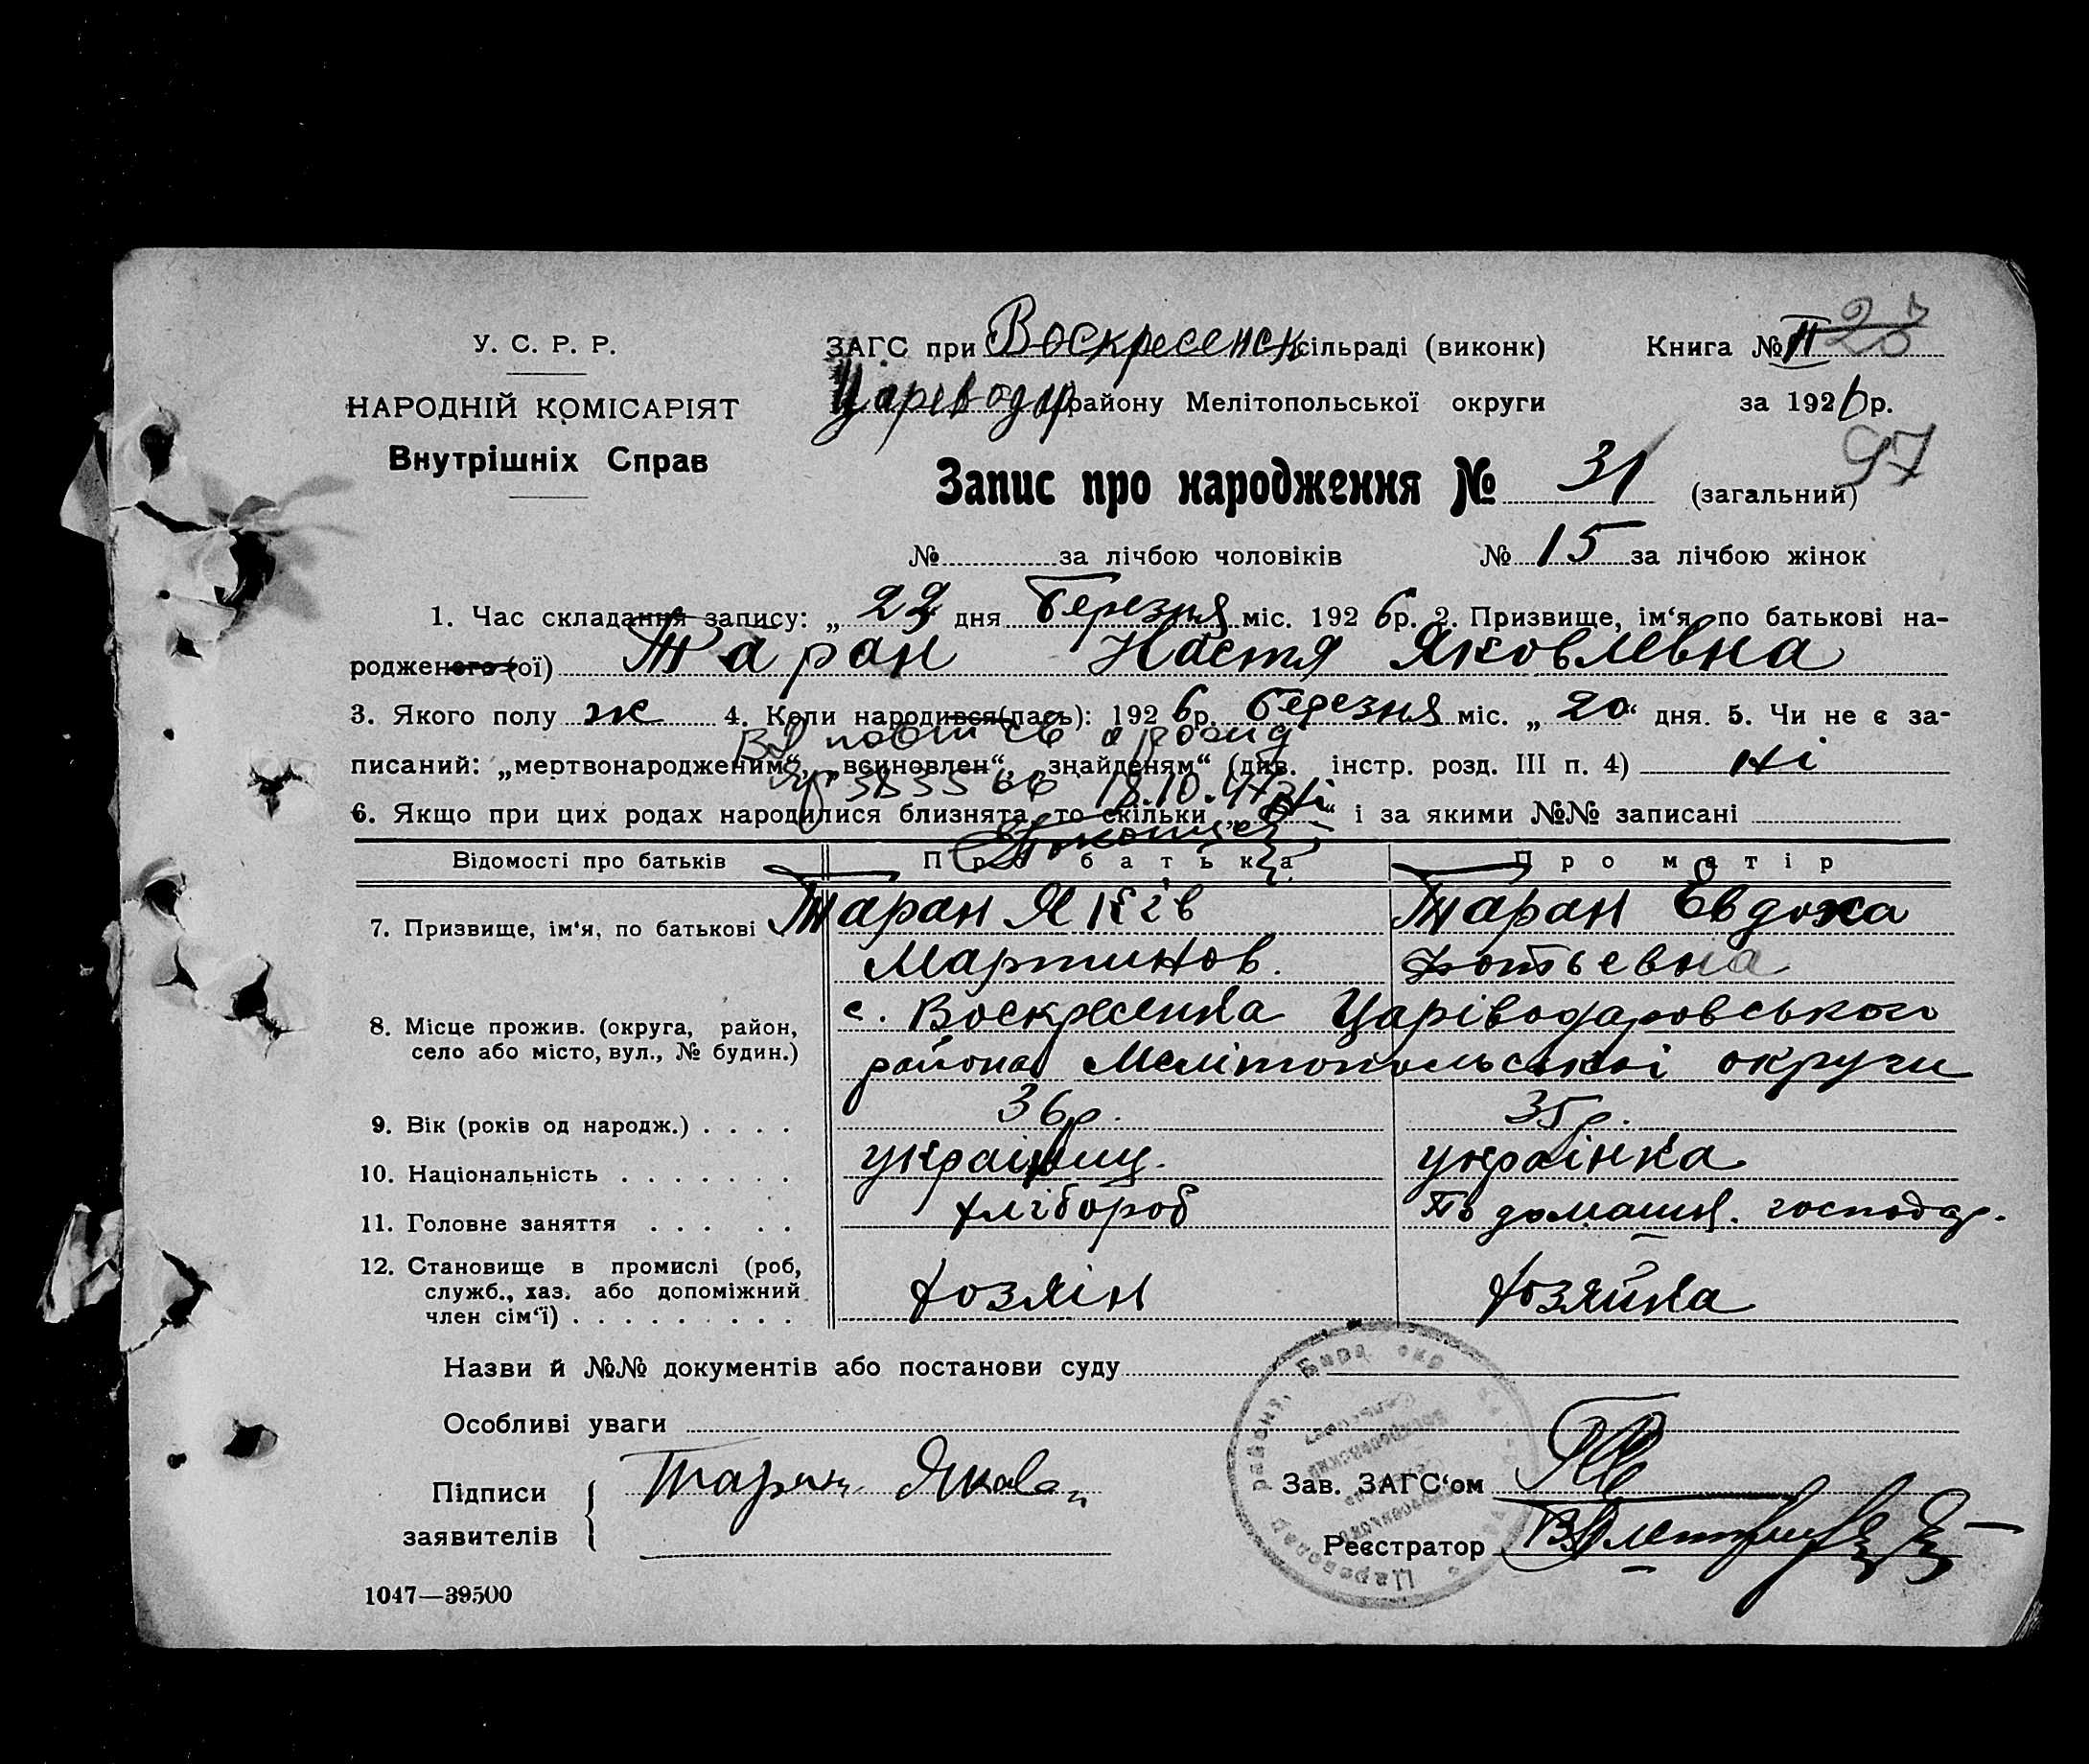 У. С. Р. Р.
НАРОДНІЙ КОМІСАРІЯТ
Внутрішніх Справ
ЗАГС при Воскресенск сільраді (виконк)
Цареводар району Мелітопольської округи
Книга № II 28
за 1926 р.
97
Запис про народження № 31 (загальний)
№ за лічбою чоловіків № 15 за лічбою жінок
1. Час складання запису: „ 22 дня Березня міс. 192 6 р. 2. Призвище, ім‘я, по батькові на-
родженого (ої) Таран Настя Яковлевна
3. Якого полу ж 4. Коли народився(лась): 192 6 р. березня міс. „ 20 “ дня. 5. Чи не є за-
Вд повт св о рожд
писаний: „мертвонародженим“, „всиновлен“, „знайденям“ (див. інстр. розд. III п. 4) Ні
18.10.47
6. Якщо при цих родах народилися близнята, то скільки „ Ні “ і за якими №№ записані
Відомості про батьків Про батька Про матір
7. Призвище, ім‘я, по батькові Таран Яків Таран Евдоха
Мартинов. Фотьевна
8. Місце прожив. (округа, район, село або місто, вул., № будин.) с. Воскресенка Царіводаровського
района Мелітопольської округи
9. Вік (років од народж.) 36 р. 35 р.
10. Національність українец. українка
11. Головне заняття хлібороб По домашн. господар.
12. Становище в промислі (роб, служб., хаз. або допоміжний член сім‘ї) хозяїн хозяйка
Назви й №№ документів або постанови суду
Особливі уваги
Підписи заявителів Таран Яков
Зав. ЗАГС‘ом
Реєстратор
1047—39500